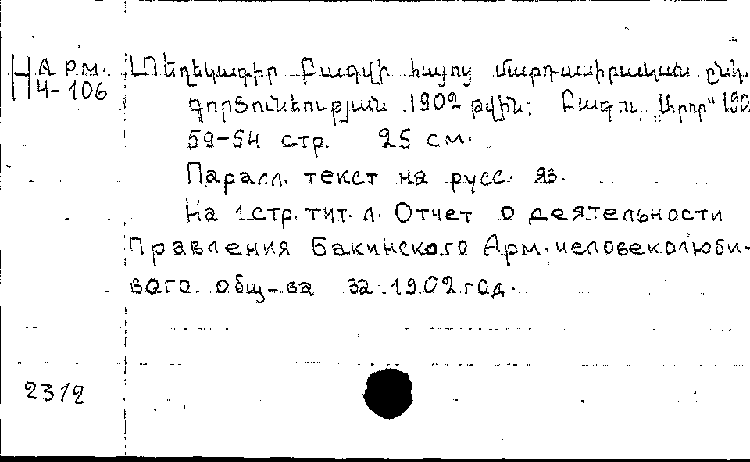 Арм.
4-106
Տեղեկագիր Բագվի հայոց մարդասիրական ընկ.
գործունեության 1902 թվին; Բագու, „Արոր" 190
59-54 стр. 25 см.
Паралл. текст на русс. яз.
На 1 стр. тит. л. Отчет о деятельности
Правления Бакинского Арм. человеколюби-
вого общ-ва за 1902 год.
2312